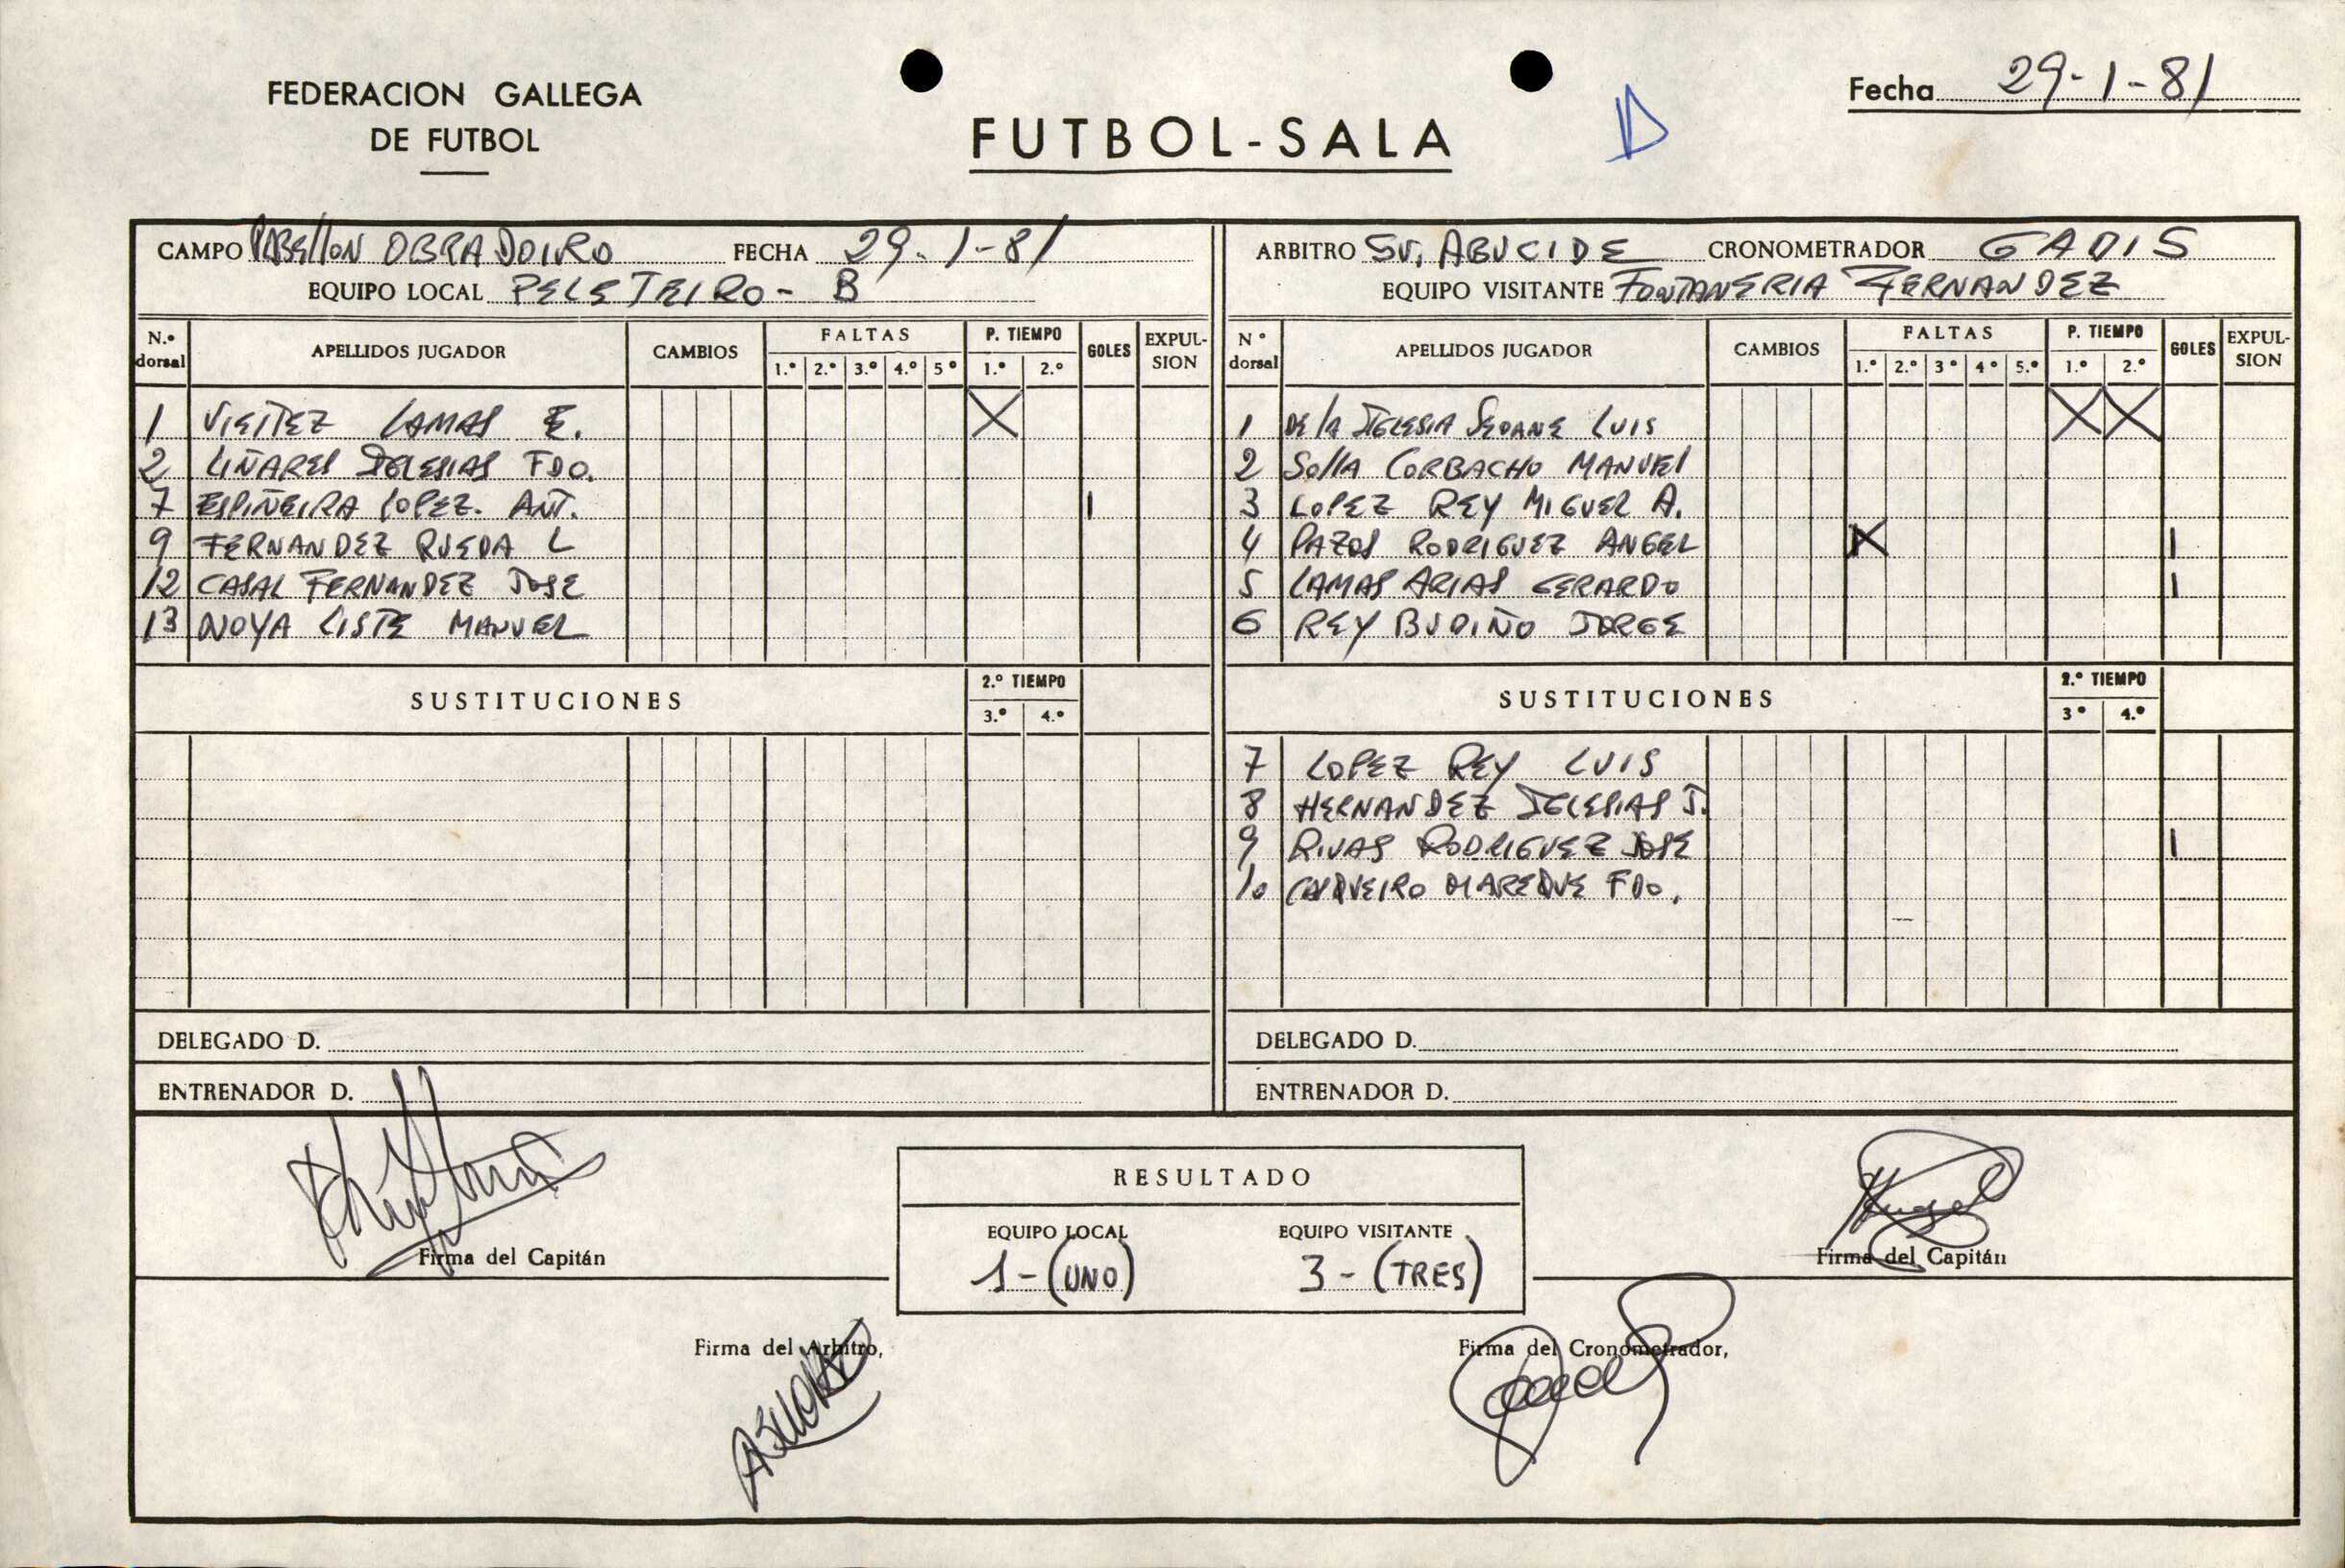 FEDERACION GALLEGA
DE FUTBOL
FUTBOL-SALA
Fecha 29-1-81
CAMPO PABELLON OBRADOIRO FECHA 29-1-81
EQUIPO LOCAL PELETEIRO - B
N.º dorsal APELLIDOS JUGADOR CAMBIOS FALTAS 1.º 2.º 3.º 4.º 5º P. TIEMPO 1.º 2.º GOLES EXPULSION
1 VIEITEZ LAMAS E. X
2 LIÑARES IGLESIAS FDO.
7 ESPIÑEIRA LOPEZ. ANT. 1
9 FERNANDEZ RUEDA L
12 CASAL FERNANDEZ JOSE
13 NOYA LISTE MANUEL
SUSTITUCIONES 2.º TIEMPO 3.º 4.º
DELEGADO D.
ENTRENADOR D.
ARBITRO Sr. ABUCIDE CRONOMETRADOR GADIS
EQUIPO VISITANTE FONTANERIA FERNANDEZ
Nº dorsal APELLIDOS JUGADOR CAMBIOS FALTAS 1.º 2.º 3º 4º 5.º P. TIEMPO 1.º 2.º GOLES EXPULSION
1 DE LA IGLESIA SEOANE LUIS X X
2 SOLLA CORBACHO MANUEL
3 LOPEZ REY MIGUEL A.
4 PAZOS RODRIGUEZ ANGEL X 1
5 LAMAS ARIAS GERARDO 1
6 REY BUDIÑO JORGE
SUSTITUCIONES 2.º TIEMPO 3º 4.º
7 LOPEZ REY LUIS
8 HERNANDEZ IGLESIAS J.
9 RIVAS RODRIGUEZ JOSE 1
10 FDO.
DELEGADO D.
ENTRENADOR D.
Firma del Capitán
RESULTADO
EQUIPO LOCAL EQUIPO VISITANTE
1 - (UNO) 3 - (TRES)
Firma del Capitán
Firma del Arbitro,
Firma del Cronometrador,